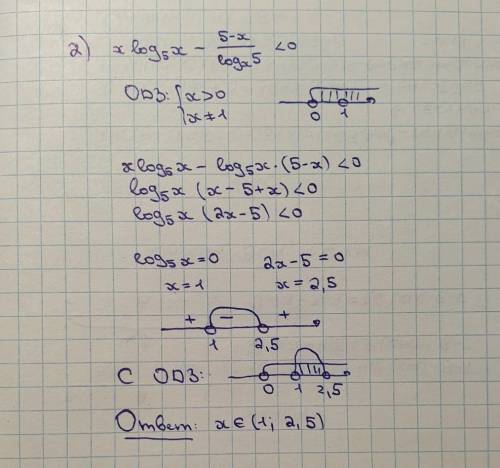 2) x log₅x - (5-x)/(logₓ5) <0
ОДЗ: { x>0
x≠1
0 1
x log₅x - log₅x · (5-x) <0
log₅x (x - 5+x) <0
log₅x (2x-5) <0
log₅x = 0 2x-5 = 0
x = 1 x = 2,5
+ - +
1 2,5
С ОДЗ:
0 1 2,5
Ответ: x∈(1; 2,5)